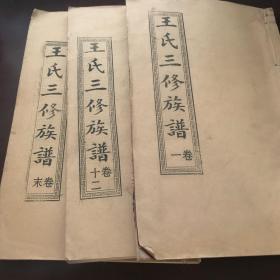 王氏三修族譜
卷末
王氏三修族譜
卷十二
王氏三修族譜
卷一